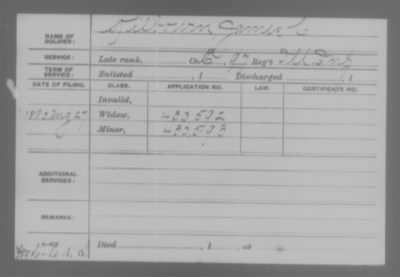 NAME OF SOLDIER: James
SERVICE: Late rank, Co. 27 Reg't Mass
TERM OF SERVICE: Enlisted , 1 Discharged , 1
DATE OF FILING. CLASS. APPLICATION NO. LAW. CERTIFICATE NO.
Invalid,
1890 Aug 27 Widow, 433,592
Minor, 433,593
ADDITIONAL SERVICES:
REMARKS:
Died , 1 , at